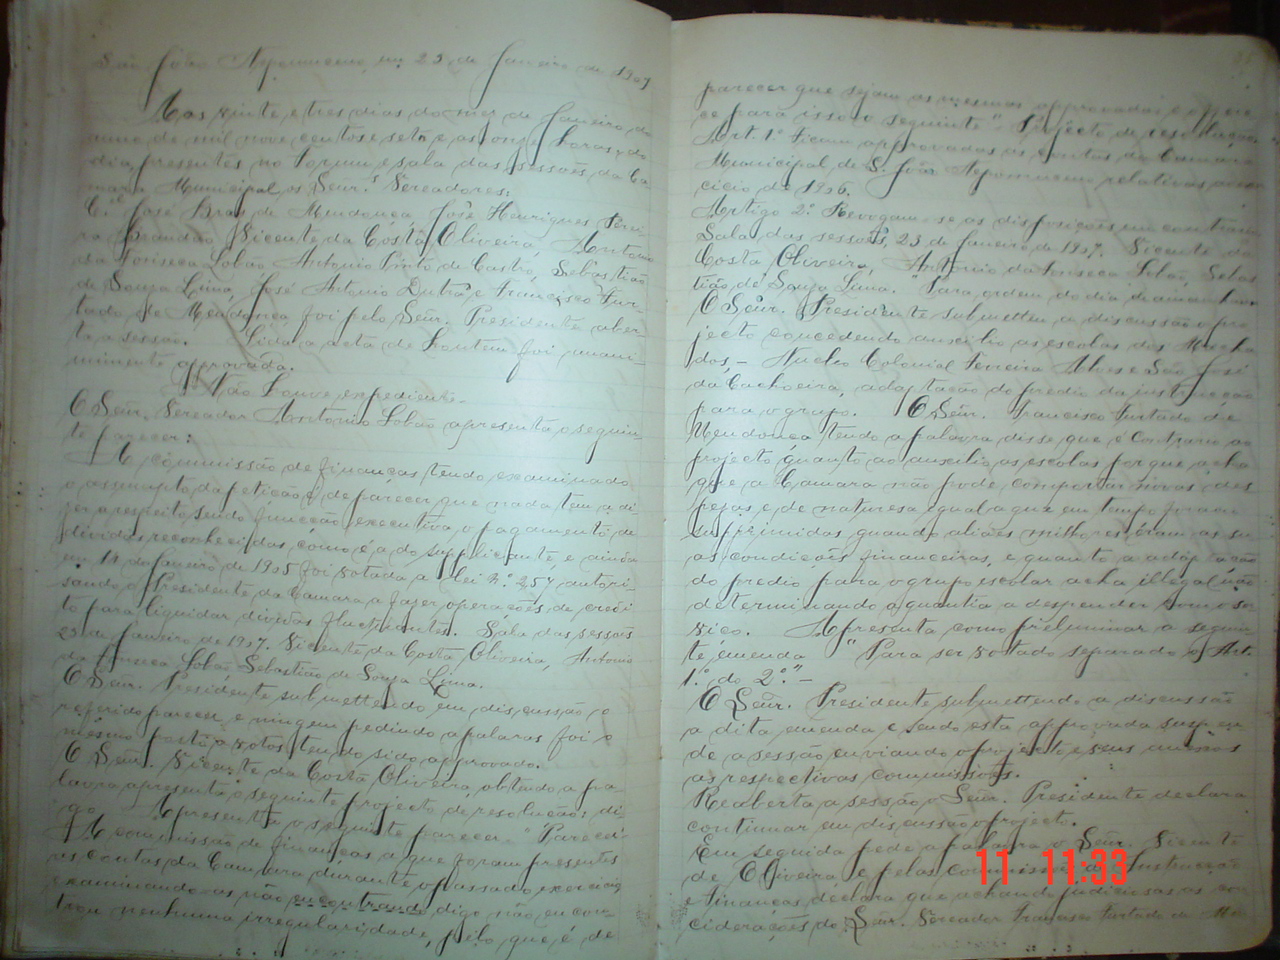 São João Nepomuceno, em 23 de Janeiro de 1907
Aos vinte e tres dias do mez de Janeiro do
anno de mil nove centos e sete e as onze horas do
dia, presentes no forum e sala das sessões da Ca-
mara Municipal, os Senr.s Vereadores:
C.el José Bras de Mendonça José Henriques Perei-
ra Brandão Vicente da Costa Oliveira, Antonio
da Fonseca Lobão Antonio Pinto de Castro, Sebastião
de Souza Lima, José Antonio Dutra e Francisco Fur-
tado de Mendonça foi pelo Senr. Presidente aber-
ta a sessão. Lida a acta de hontem foi unani-
mimente approvada.
Não houve expediente.
O Senr. Vereador Antonio Lobão apresenta o seguin-
te parecer:
A commissão de finanças tendo examinado
o assumpto da petição é de parecer que nada tem a di-
zer a respeito sendo funcção executiva o pagamento de
dividas reconhecidas, como é a do supplicante, e ainda
em 14 de Janeiro de 1905 foi votada a lei n.º 257 autori-
sando o Presidente da Camara a fazer operações de credi-
to para liquidar dividas fluctuantes. Sala das sessões
23 de Janeiro de 1907. Vicente da Costa Oliveira, Antonio
da Fonseca Lobão, Sebastião de Souza Lima.
O Senr. Presidente submettendo em discussão o
referido parecer e ningem pedindo a palavra foi o
mesmo posto a votos tendo sido approvado.
O Senr. Vicente da Costa Oliveira, obtendo a pa-
lavra apresenta o seguinte projecto de resolução: di-
go Apresenta o seguinte parecer. "Parecer
A commissão de finanças a que foram presentes
as contas da Camara durante o passado exercicio
examinando-as não encontrando digo não encon-
trou nenhuma irregularidade, pelo que é de
parecer que sejam as mesmas approvadas e offere-
ce para isso o seguinte "Projecto de resolução
Art. 1º Ficam approvadas as contas da Camara
Municipal de S. João Nepomuceno relativas ao exer-
cicio de 1906.
Artigo 2º Revogam-se as disposições em contrario
Sala das sessões, 23 de Janeiro de 1907. Vicente da
Costa Oliveira, Antonio da Fonseca Lobão, Sebas-
tião de Souza Lima. Para ordem do dia de amanhan
O Senr. Presidente submetteu a discussão o pro-
jecto concedendo auxilio as escolas dos Macha-
dos, - Nucleo Colonial Ferreira Alves e São José
da Cachoeira, adaptação do predio da instrucção
para o grupo. O Senr. Francisco Furtado de
Mendonça tendo a palavra disse que é contrario ao
projecto quanto ao auxilio as escolas porque acha
que a Camara não pode comportar novas des-
pezas e de natureza igual a que em tempo foram
supprimidas quando aliás milhores eram as su-
as condições financeiras, e quanto a adaptação
do predio para o grupo escolar acha illegal não
determinando a quantia a despender com o ser-
viço. Apresenta como preliminar a seguin-
te emenda "Para ser votado separado o Art.
1.º do 2.º" -
O Senr. Presidente submettendo a discussão
a dita emenda e sendo esta approvada suspen-
de a sessão enviando o projecto e seus annexos
as respectivas commissões.
Reaberta a sessão o Senr. Presidente declara
continuar em discussão o projecto.
Em seguida pede a palavra o Senr. Vicente
de Oliveira e pelas commissões de Instrucção
e finanças declara que achando judiciosas as con-
ciderações do Senr. Vereador Francisco Furtado de Me-
11 11:33